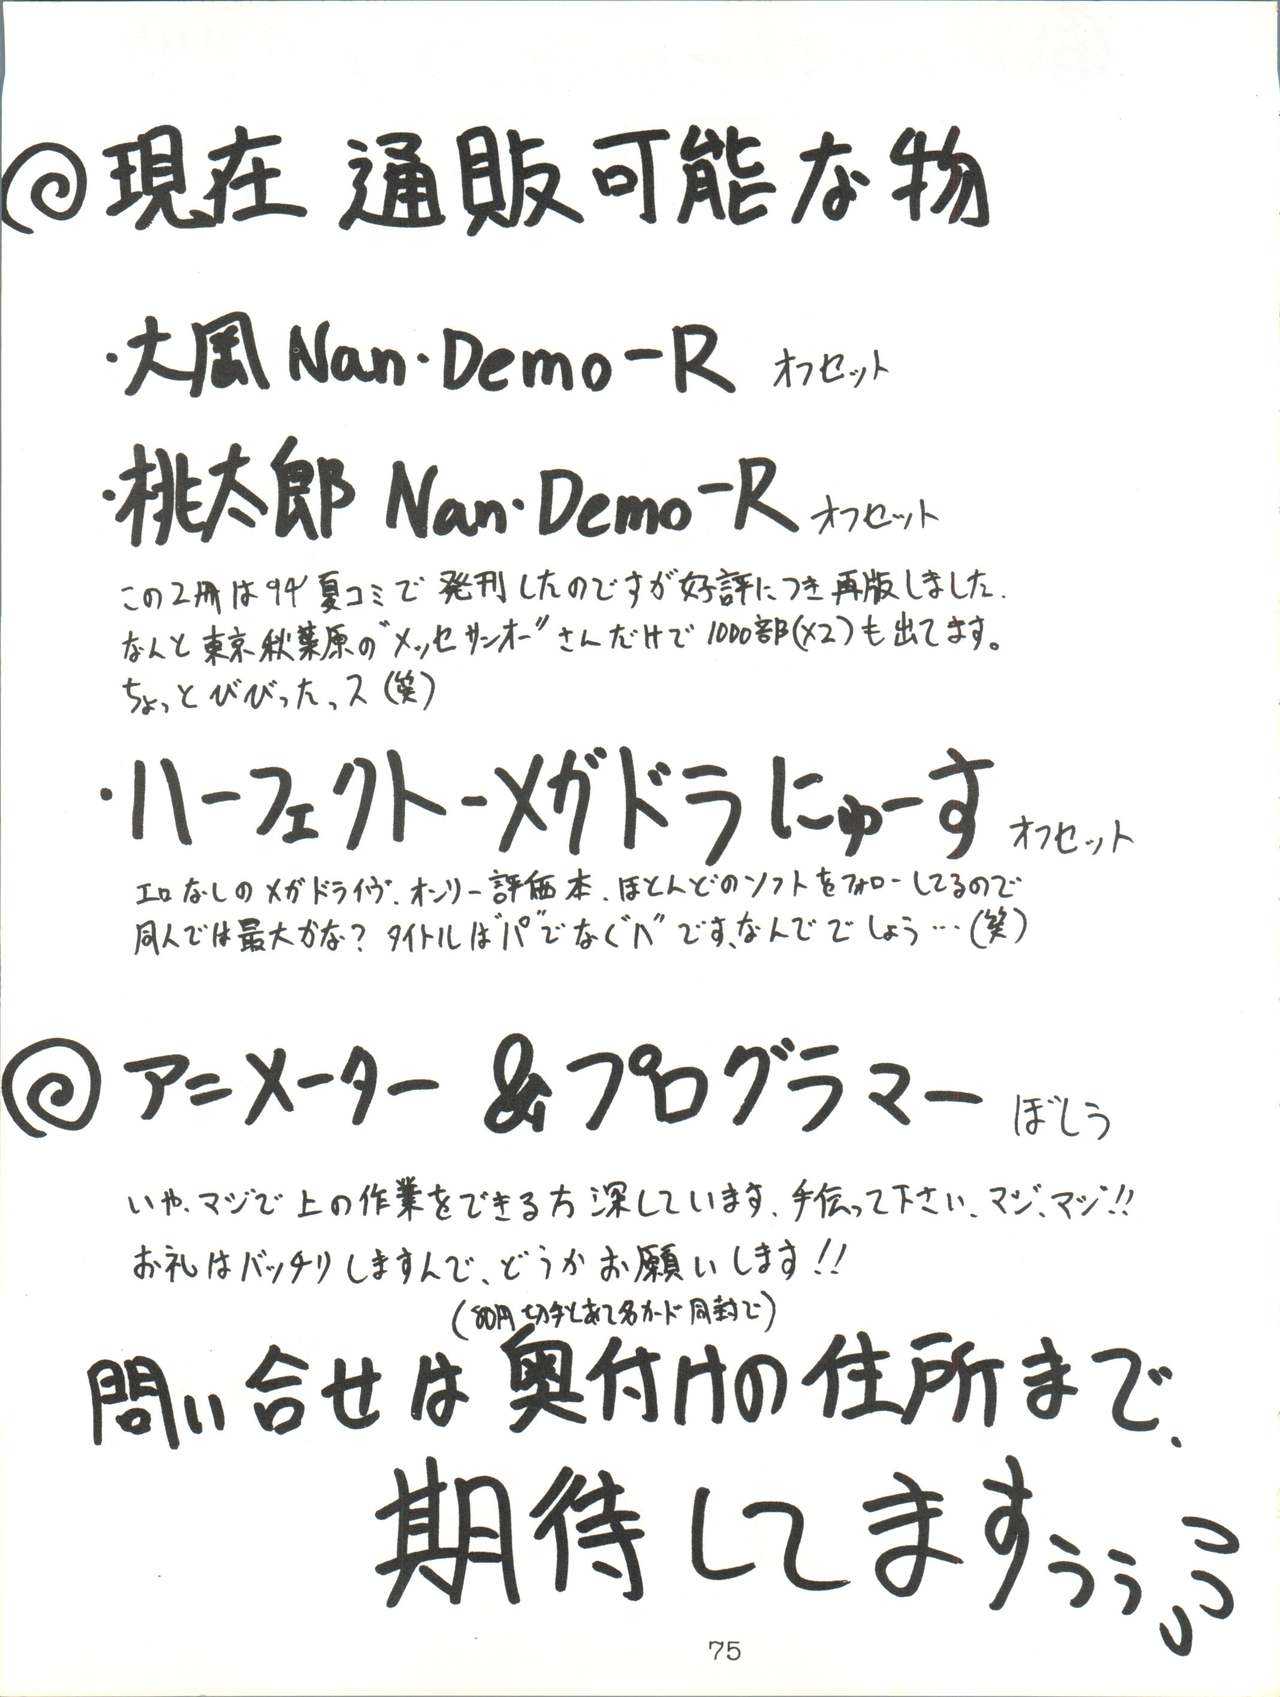 現在 通販可能な物
・大岡 Nan・Demo-R オフセット
・桃太郎 Nan・Demo-R オフセット
この2冊は94'夏コミで発刊したのですが好評につき再版しました.
なんと東京秋葉原の"メッセサンオー"さんだけで1000部(×2)も出てます。
ちょっとびびったっス(笑)
・ハーフェクト-メガドラにゅーす オフセット
エロなしのメガドライヴ.オンリー評価本.ほとんどのソフトをフォローしてるので
同人では最大かな?タイトルは"パ"でなく"ハ"です、なんででしょう…(笑)
アニメーター&プログラマー ぼしう
いや.マジで上の作業をできる方深しています.手伝って下さい.マジ、マジ!!
お礼はバッチリしますんで、どうかお願いします!!
(80円切手とあて名カード同封で)
問い合せは奥付けの住所まで.
期待してますぅぅ
75